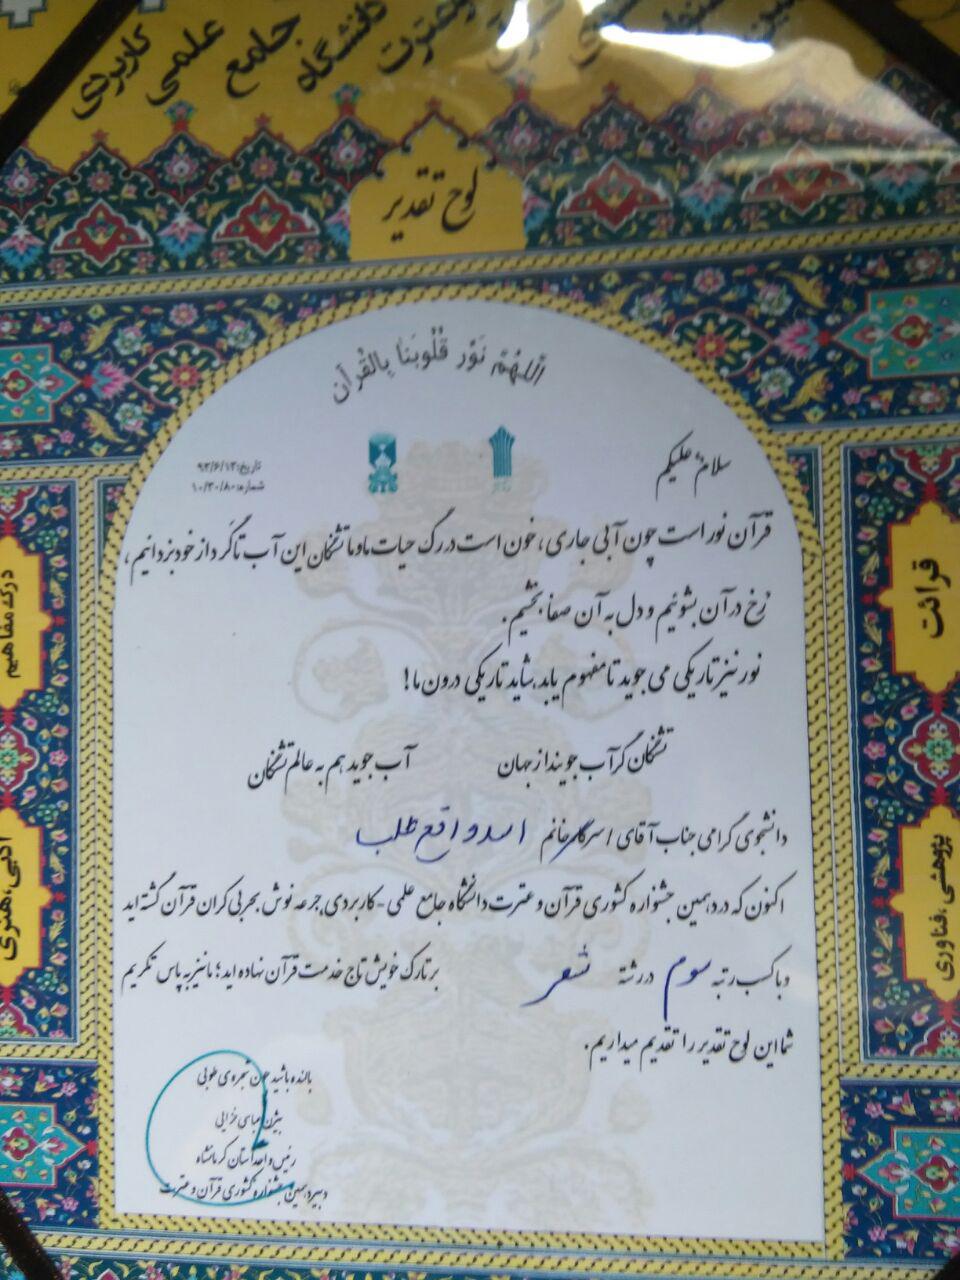 دانشگاه جامع علمی کاربردی
لوح تقدیر
اللهم نور قلوبنا بالقرآن
سلام علیکم
تاریخ: ۹۳/۶/۱۳
شماره: ۱۰/۳۰/۸۰
قرآن نور است چون آبی جاری، خون است در رگ حیات ما و ما تشنگان این آب تا گرد از خود بزدائیم،
رخ در آن بشوئیم و دل به آن صفا بخشیم.
نور نیز تاریکی می جوید تا مفهوم یابد، شاید تاریکی درون ما!
تشنگان گر آب جویند از جهان آب جوید هم به عالم تشنگان
دانشجوی گرامی جناب آقای / سرکار خانم اسد واقع طلب
اکنون که در دهمین جشنواره کشوری قرآن و عترت دانشگاه جامع علمی - کاربردی جرعه نوش بحر بی کران قرآن گشته اید
و با کسب رتبه سوم در رشته شعر بر تارک خویش تاج خدمت قرآن نهاده اید؛ ما نیز به پاس تکریم
شما این لوح تقدیر را تقدیم میداریم.
بالنده باشید چون شجره ی طوبی
بیژن عباسی خزایی
رئیس واحد استان کرمانشاه
دبیر دهمین جشنواره کشوری قرآن و عترت
قرائت
پژوهشی، فناوری
درک مفاهیم
ادبی، هنری